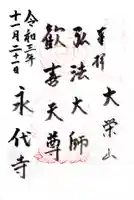 大榮山
奉拝
弘法大師
歓喜天尊
永代寺
令和三年
十一月二十一日